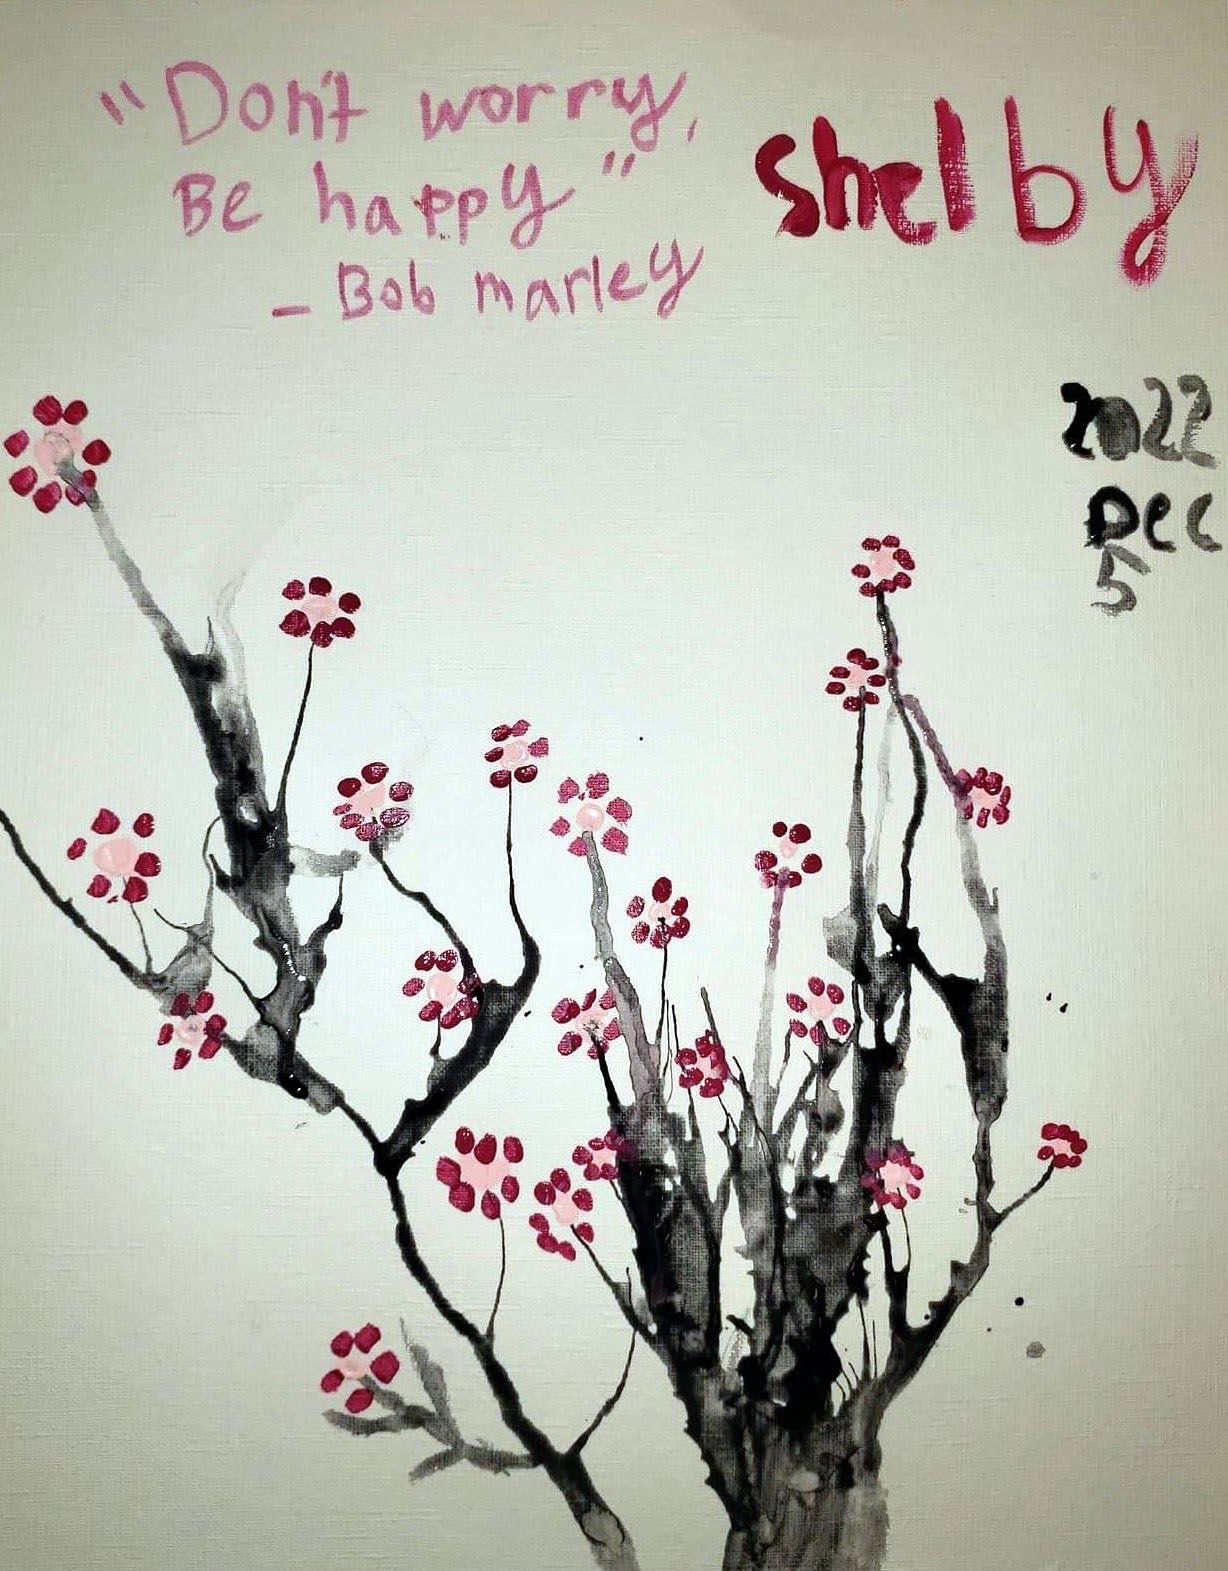 "Don't worry,
Be happy"
- Bob marley
shelby
2022
Dec
5